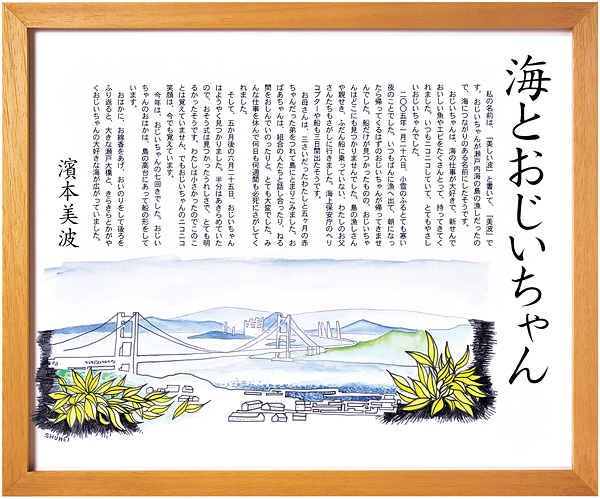 海とおじいちゃん
　私の名前は、「美しい波」と書いて、「美波」で
す。おじいちゃんが瀬戸内海の島の漁しだったの
で、海につながりのある名前にしたそうです。
　おじいちゃんは、海の仕事が大好きで、新せんで
おいしい魚やエビをたくさんとって、持ってきてく
れました。いつもニコニコしていて、とてもやさし
いおじいちゃんでした。
　二〇〇五年一月二十六日、小雪のふるとても寒い
夜のことでした。いつもばんに漁へ出て、朝になっ
たら帰ってくるはずのおじいちゃんが帰ってきませ
んでした。船だけが見つかったものの、おじいちゃ
んはどこにも見つかりませんでした。島の漁しさん
や親せき、ふだん船に乗っていない、わたしのお父
さんたちもさがしに行きました。海上保安庁のヘリ
コプターや船も三日間出たそうです。
　お母さんは、三さいだったわたしと五ヶ月の赤
ちゃんだった弟をつれて島にとまりこみました。お
ばあちゃんは、組合の人たちと話し合ったり、ねる
間をおしんでいのったりと、とても大変でした。み
んな仕事を休んで何日も何週間も必死にさがしてく
れました。
　そして、五か月後の六月二十五日、おじいちゃん
はようやく見つかりました。半分はあきらめていた
ので、おそう式は見つかったうれしさで、とても明
るかったそうです。わたしは小さかったのでこのこ
とは覚えてません。でもおじいちゃんのニコニコ
笑顔は、今でも覚えています。
　今年は、おじいちゃんの七回きでした。おじい
ちゃんのおはかは、島の高台にあって船の形をして
います。
　おはかに、お線香をあげ、おいのりをして後ろを
ふり返ると、大きな瀬戸大橋と、きらきらとかがや
くおじいちゃんの大好きな海が広がっていました。
濱本美波
SHUHEI